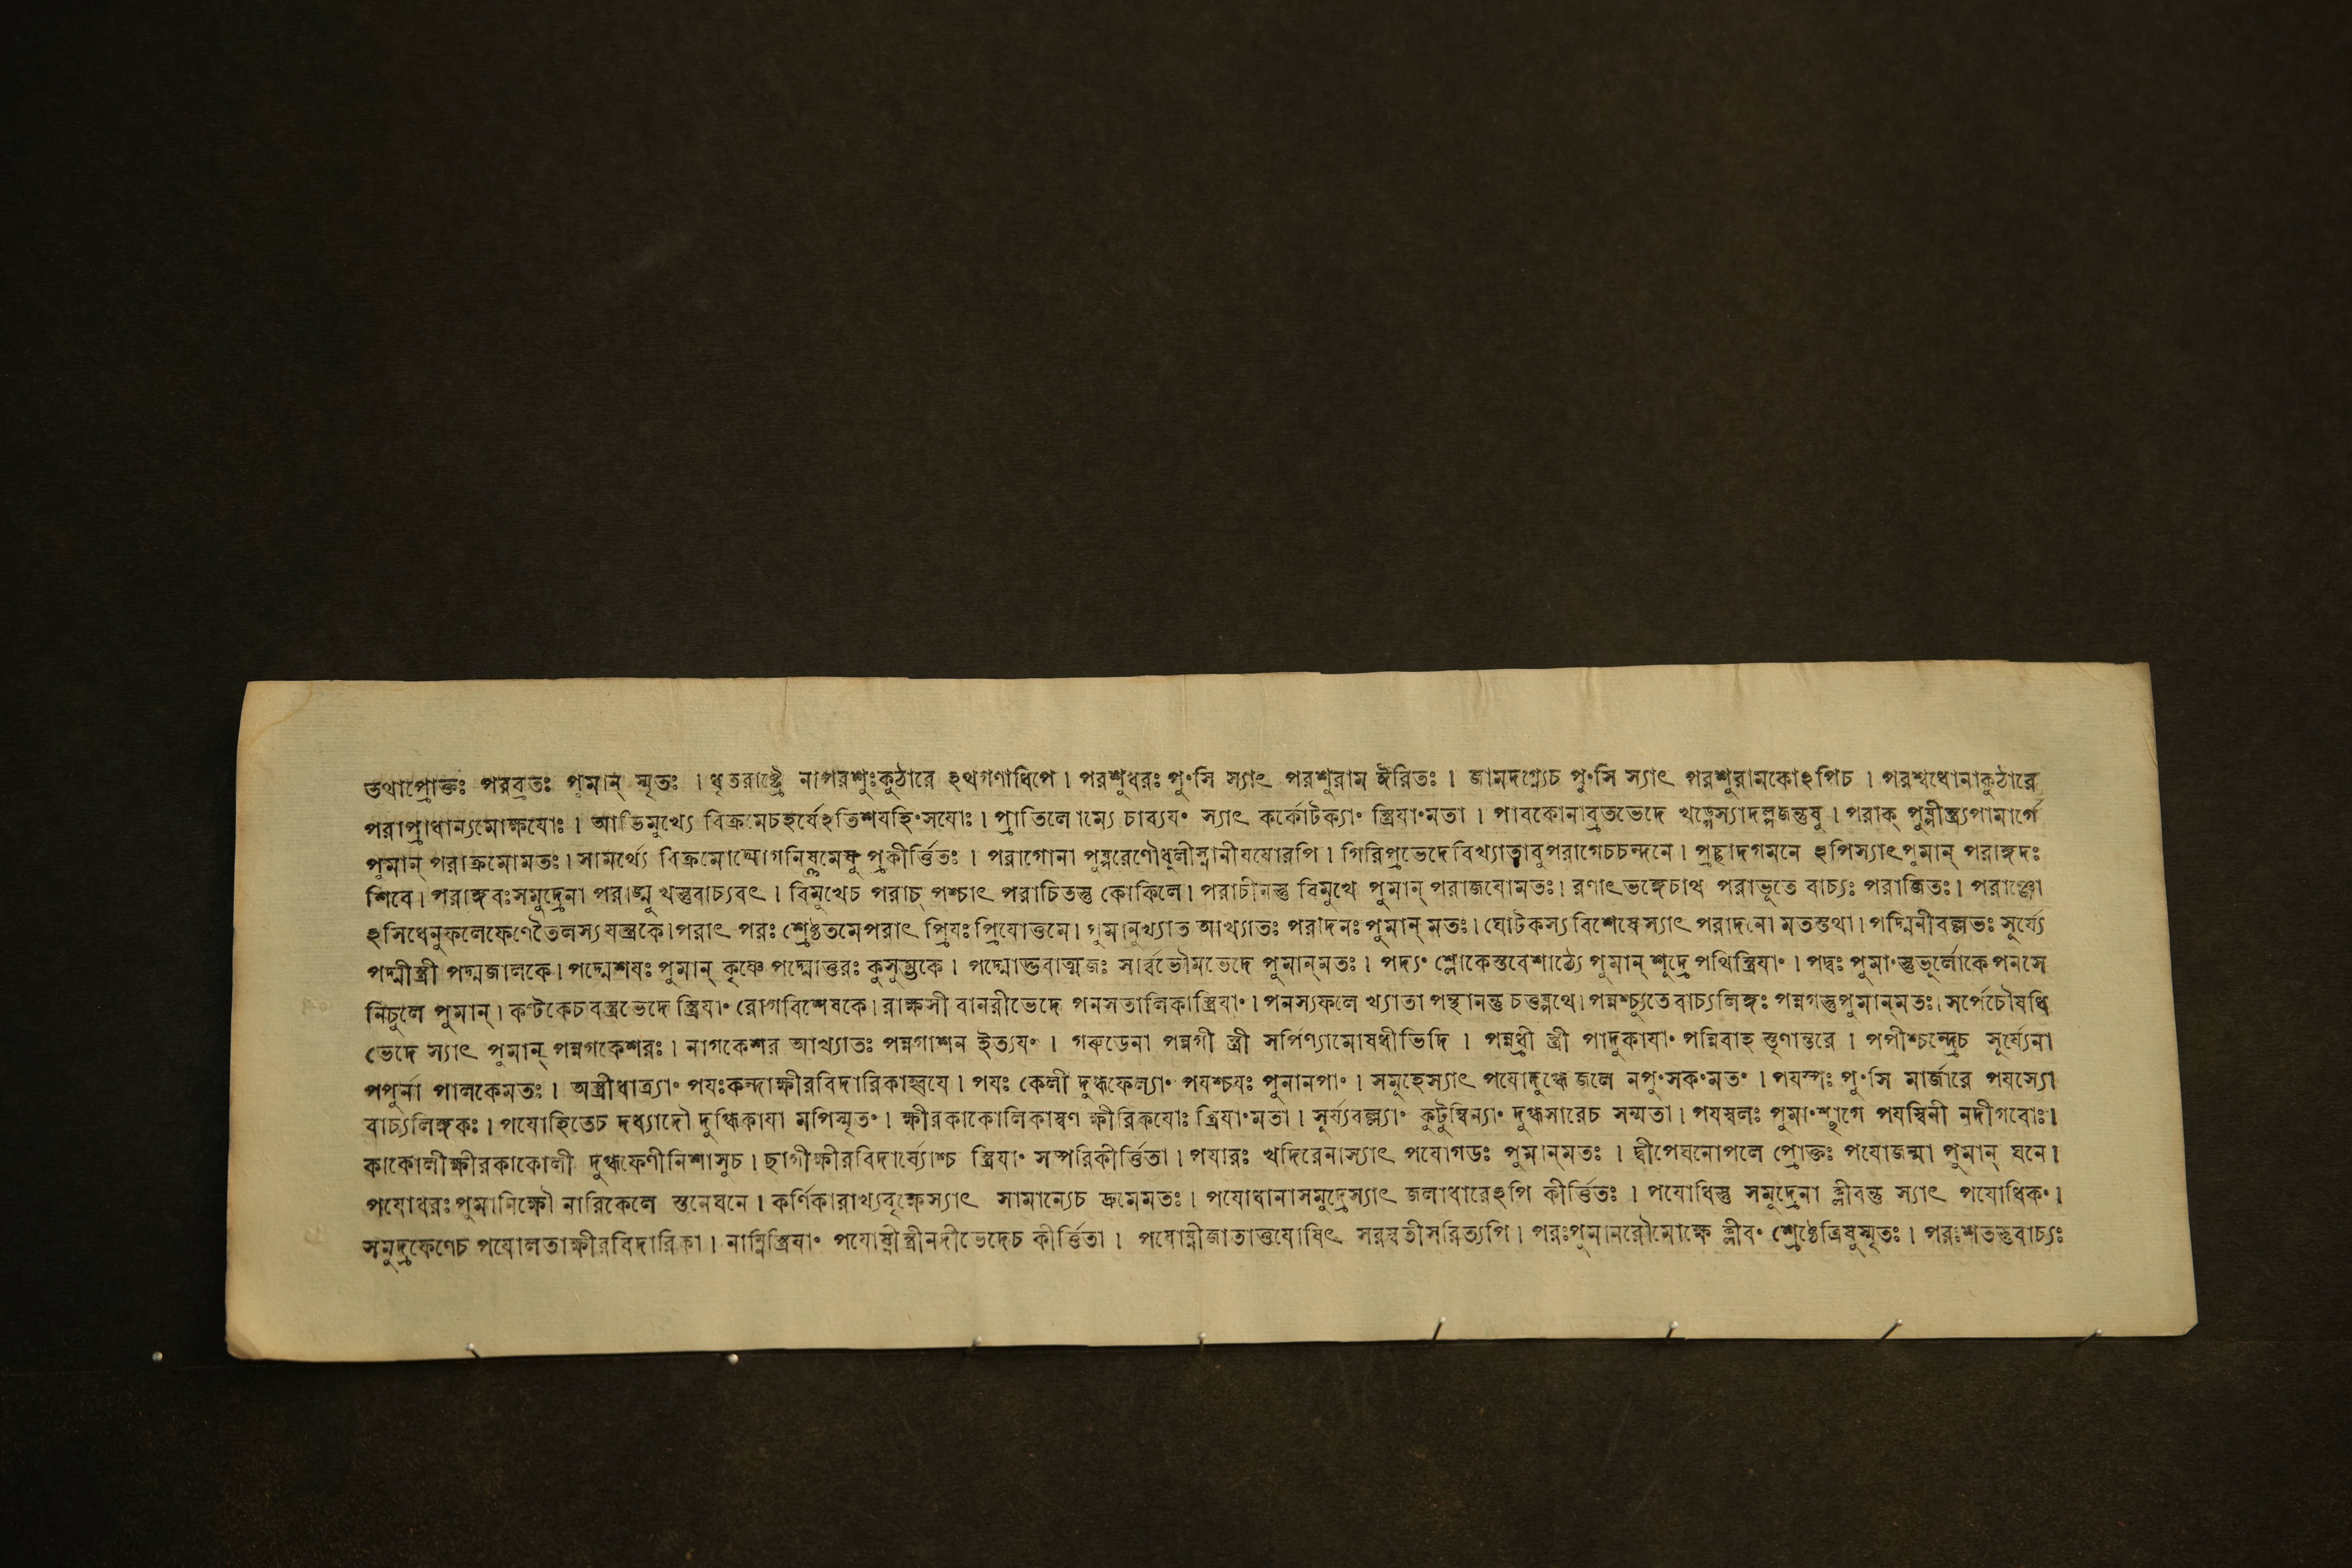 স্তথাপ্রোক্তঃ পরব্রতঃ পুমান্ স্মৃতঃ । ধৃতরাষ্ট্রে নাপরশুঃকুঠারে ঽথগণাধিপে । পরশুধরঃ পুংসি স্যাৎ পরশুরাম ঈরিতঃ । জামদগ্ন্যেচ পুংসি স্যাৎ পরশুরামকোঽপিচ । পরশ্বধোনাকুঠারে
পরাপ্রাধান্যমোক্ষযোঃ । আভিমুখ্যে বিক্রমেচহর্ষেঽতিশযহিংসযোঃ । প্রাতিলোম্যে চাব্যযং স্যাৎ কর্কোটক্যাং স্ত্রিযাংমতা । পাবকোনাব্রতভেদে খড়্গেস্যাদল্পজন্তুষু । পরাক্ পুষ্পীস্ত্র্যপামার্গে
পুমান্ পরাক্রমোমতঃ । সামর্থ্যে বিক্রমোদ্যোগনিষ্ক্রমেষু প্রকীর্ত্তিতঃ । পরাগোনা পুষ্পরেণৌধুলীস্নানীযযোরপি । গিরিপ্রভেদেবিখ্যাতাবুপরাগেচচন্দনে । প্রচ্ছাদগমনে ঽপিস্যাৎপুমান্ পরাঙ্গদঃ
শিবে । পরাঙ্গবঃসমুদ্রেনা পরাঙ্মুখস্তুবাচ্যবৎ । বিমুখেচ পরাচ্ পশ্চাৎ পরাচিতস্তু কোকিলে । পরাচীনস্তু বিমুখে পুমান্ পরাজযোমতঃ । রণাৎভঙ্গেচাথ পরাভূতে বাচ্যঃ পরাজিতঃ । পরাঞ্জো
ঽসিধেনুফলেফেণেতৈলস্যযন্ত্রকে । পরাৎ পরঃ শ্রেষ্ঠতমেপরাৎ প্রিযঃ প্রিযোত্তমে । পুমানুখ্যাত আখ্যাতঃ পরাদনঃ পুমান্ মতঃ । ঘোটকস্যবিশেষেস্যাৎ পরাদনো মতস্তথা । পদ্মিনীবল্লভঃ সূর্য্যে
পদ্মীস্ত্রী পদ্মজালকে । পদ্মেশযঃ পুমান্ কৃষ্ণে পদ্মোত্তরঃ কুসুম্ভকে । পদ্মোত্তবাত্মজঃ সার্ব্বভৌমভেদে পুমান্‌মতঃ । পদ্যং শ্লোকেস্তবেশাঠ্যে পুমান্ শূদ্রে পথিস্ত্রিযাং । পদ্বঃ পুমাংস্তুভূর্লোকে পনসে
নিচুলে পুমান্ । কণ্টকেচবস্ত্রভেদে স্ত্রিযাং রোগবিশেষকে । রাক্ষসী বানরীভেদে পনসতালিকাস্ত্রিযাং । পনস্যফলে খ্যাতা পন্থানস্তু চতুষ্পথে । পন্নশ্চ্যুতে বাচ্যলিঙ্গঃ পন্নগস্তুপুমান্‌মতঃ । সর্পেচৌষধি
ভেদে স্যাৎ পুমান্ পন্নগকেশরঃ । নাগকেশর আখ্যাতঃ পন্নগাশন ইত্যযং । গরুডেনা পন্নগী স্ত্রী সর্পিণ্যামোষধীভিদি । পন্নধ্রী স্ত্রী পাদুকাযাং পন্নিবাহ স্তৃণান্তরে । পপীশ্চন্দ্রেচ সূর্য্যেনা
পপুর্না পালকেমতঃ । অস্ত্রীধাত্র্যাং পযঃকন্দাক্ষীরবিদারিকাহ্বযে । পযঃ কেলী দুগ্ধফেল্যাং পযশ্চযঃ পুমানপাং । সমূহেস্যাৎ পযোদুগ্ধে জলে নপুংসকংমতং । পযস্পঃ পুংসি মার্জারে পযস্যো
বাচ্যলিঙ্গকঃ । পযোহিতেচ দধ্যাদৌ দুগ্ধিকাযা মপিস্মৃতং । ক্ষীরকাকোলিকাস্বর্ণ ক্ষীরিকযোঃ স্ত্রিযাংমতা । সূর্য্যবল্ল্যাং কুটুম্বিন্যাং দুগ্ধসারেচ সম্মতা । পযস্বলঃ পুমাংশ্ছাগে পযস্বিনী নদীগবোঃ ।
কাকোলীক্ষীরকাকোলী দুগ্ধফেণীনিশাসুচ । ছাগীক্ষীরবিদার্য্যোশ্চ স্ত্রিযাং সম্পরিকীর্ত্তিতা । পযারঃ খদিরেনাস্যাৎ পযোগডঃ পুমান্‌মতঃ । দ্বীপেঘনোপলে প্রোক্তঃ পযোজন্মা পুমান্ ঘনে ।
পযোধরঃ পুমানিক্ষৌ নারিকেলে স্তনেঘনে । কর্ণিকারাখ্যবৃক্ষেস্যাৎ সামান্যেচ দ্রুমেমতঃ । পযোধানাসমুদ্রেস্যাৎ জলাধারেঽপি কীর্ত্তিতঃ । পযোধিস্তু সমুদ্রেনা ক্লীবন্তু স্যাৎ পযোধিকং ।
সমুদ্রফেণেচ পযোলতাক্ষীরবিদারিকা । নাম্নিস্ত্রিযাং পযোষ্ণীস্ত্রীনদীভেদেচ কীর্ত্তিতা । পযোষ্ণীজাতাত্তযোষিৎ সরস্বতীসরিত্যপি । পরঃপুমানরৌমোক্ষে ক্লীবং শ্রেষ্ঠেত্রিষুস্মৃতঃ । পরঃশতস্তুবাচ্যঃ